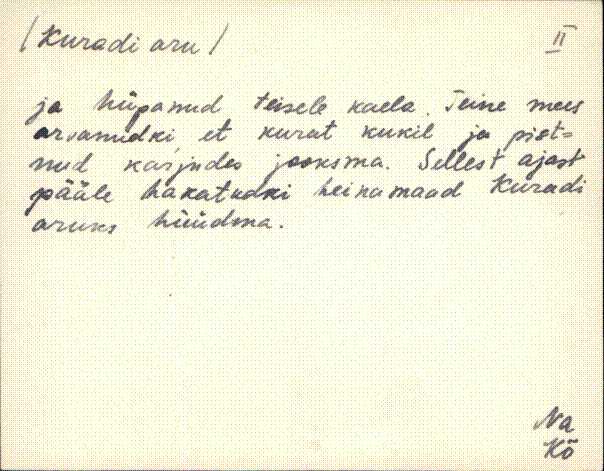 /Kuradi aru/
II
ja hüpanud teisele kaela. Teine mees
arvanudki, et kurat kukil ja pist=
nud karjudes jooksma. Sellest ajast
pääle hakatudki heinamaad Kuradi
aruks hüüdma.
Na
Kõ